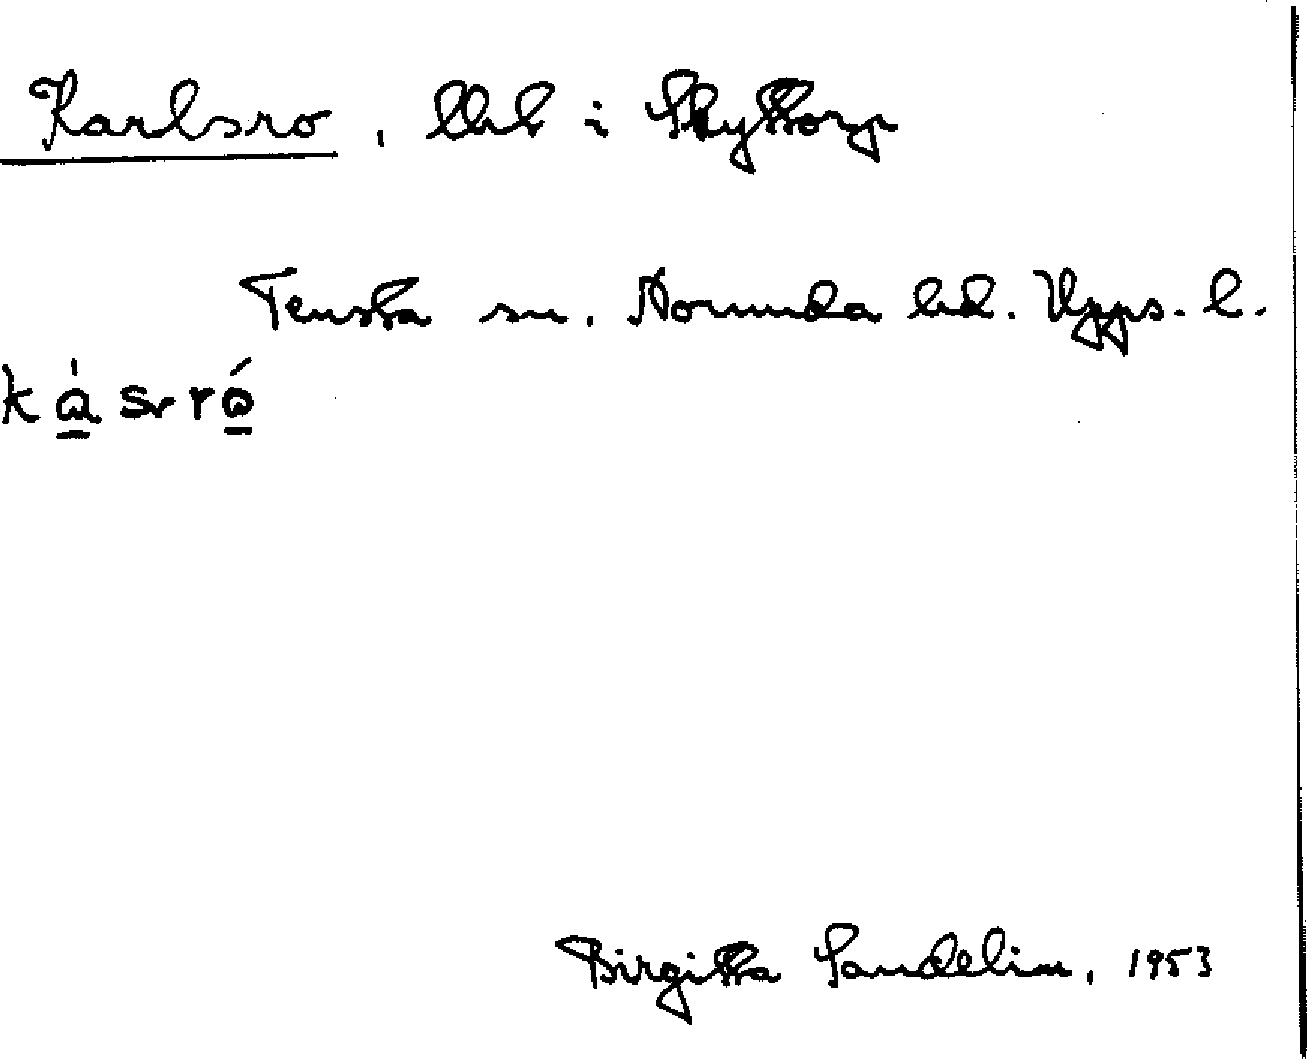 Karlsro, lht i Skyttorp
Tensta sn. Norunda hd. Upps. l.
Birgitta Sandelin, 1953